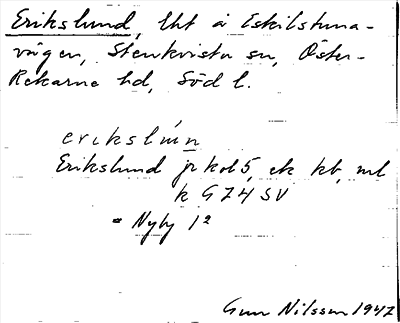 Erikslund, lht å Eskilstuna-
vägen, Stenkvista sn, Öster-
Rekarne hd, Söd l.
erikslún
Erikslund jr kol 5, ek kb, ml
k G74 SV
= Nyby 1²
Gun Nilsson 1947